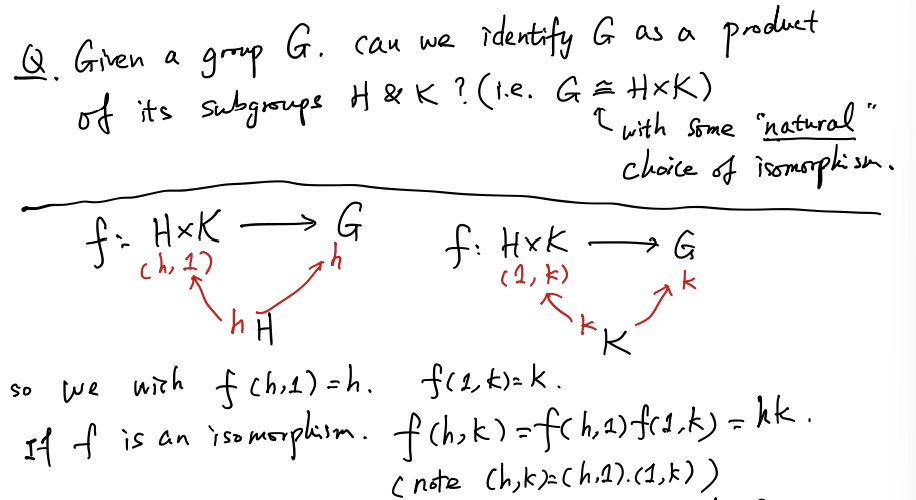 Q. Given a group G. can we identify G as a product
of its subgroups H & K ? (i.e. G ≅ H×K)
with some "natural"
choice of isomorphism.
f: H×K → G
(h, 1) h
h H
f: H×K → G
(1, k) k
k K
so we wish f(h,1)=h. f(1,k)=k.
If f is an isomorphism. f(h,k)=f(h,1)f(1,k)=hk.
(note (h,k)=(h,1).(1,k))